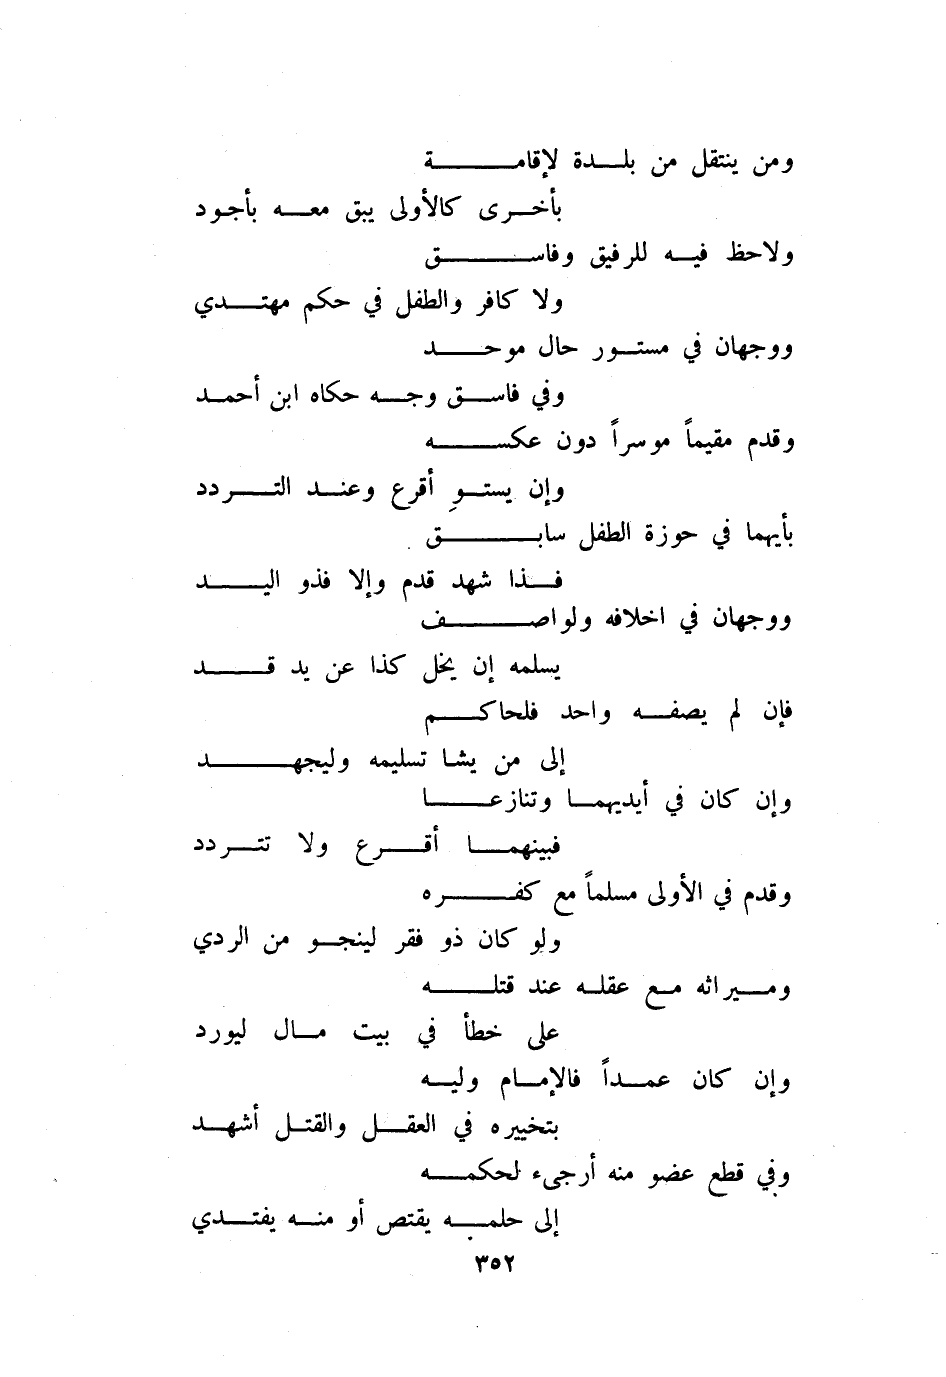 ومن ينتقل من بلدة لإقامة
بأخرى كالأولى يبق معه بأجود
ولاحظ فيه للرفيق وفاسق
ولا كافر والطفل في حكم مهتدي
ووجهان في مستور حال موحد
وفي فاسق وجه حكاه ابن أحمد
وقدم مقيماً موسراً دون عكسه
وإن يستو أقرع وعند التردد
بأيهما في حوزة الطفل سابق
فذا شهد قدم وإلا فذو اليد
ووجهان في اخلافه ولواصف
يسلمه إن يخل كذا عن يد قد
فإن لم يصفه واحد فلحاكم
إلى من يشا تسليمه وليجهد
وإن كان في أيديهما وتنازعا
فبينهما أقرع ولا تتردد
وقدم في الأولى مسلماً مع كفره
ولو كان ذو فقر لينجو من الردي
وميراثه مع عقله عند قتله
على خطأ في بيت مال ليورد
وإن كان عمداً فالإمام وليه
بتخييره في العقل والقتل أشهد
وفي قطع عضو منه أرجىء لحكمه
إلى حلمه يقتص أو منه يفتدي
٣٥٢